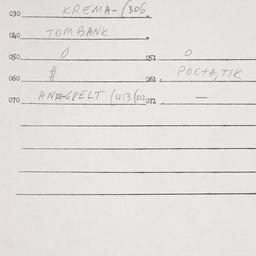 030 KREMA-(306.
040 TOMBANK
050 0 051 0
060 $ 061 POC+A, TIK
070 (413(212 071 —